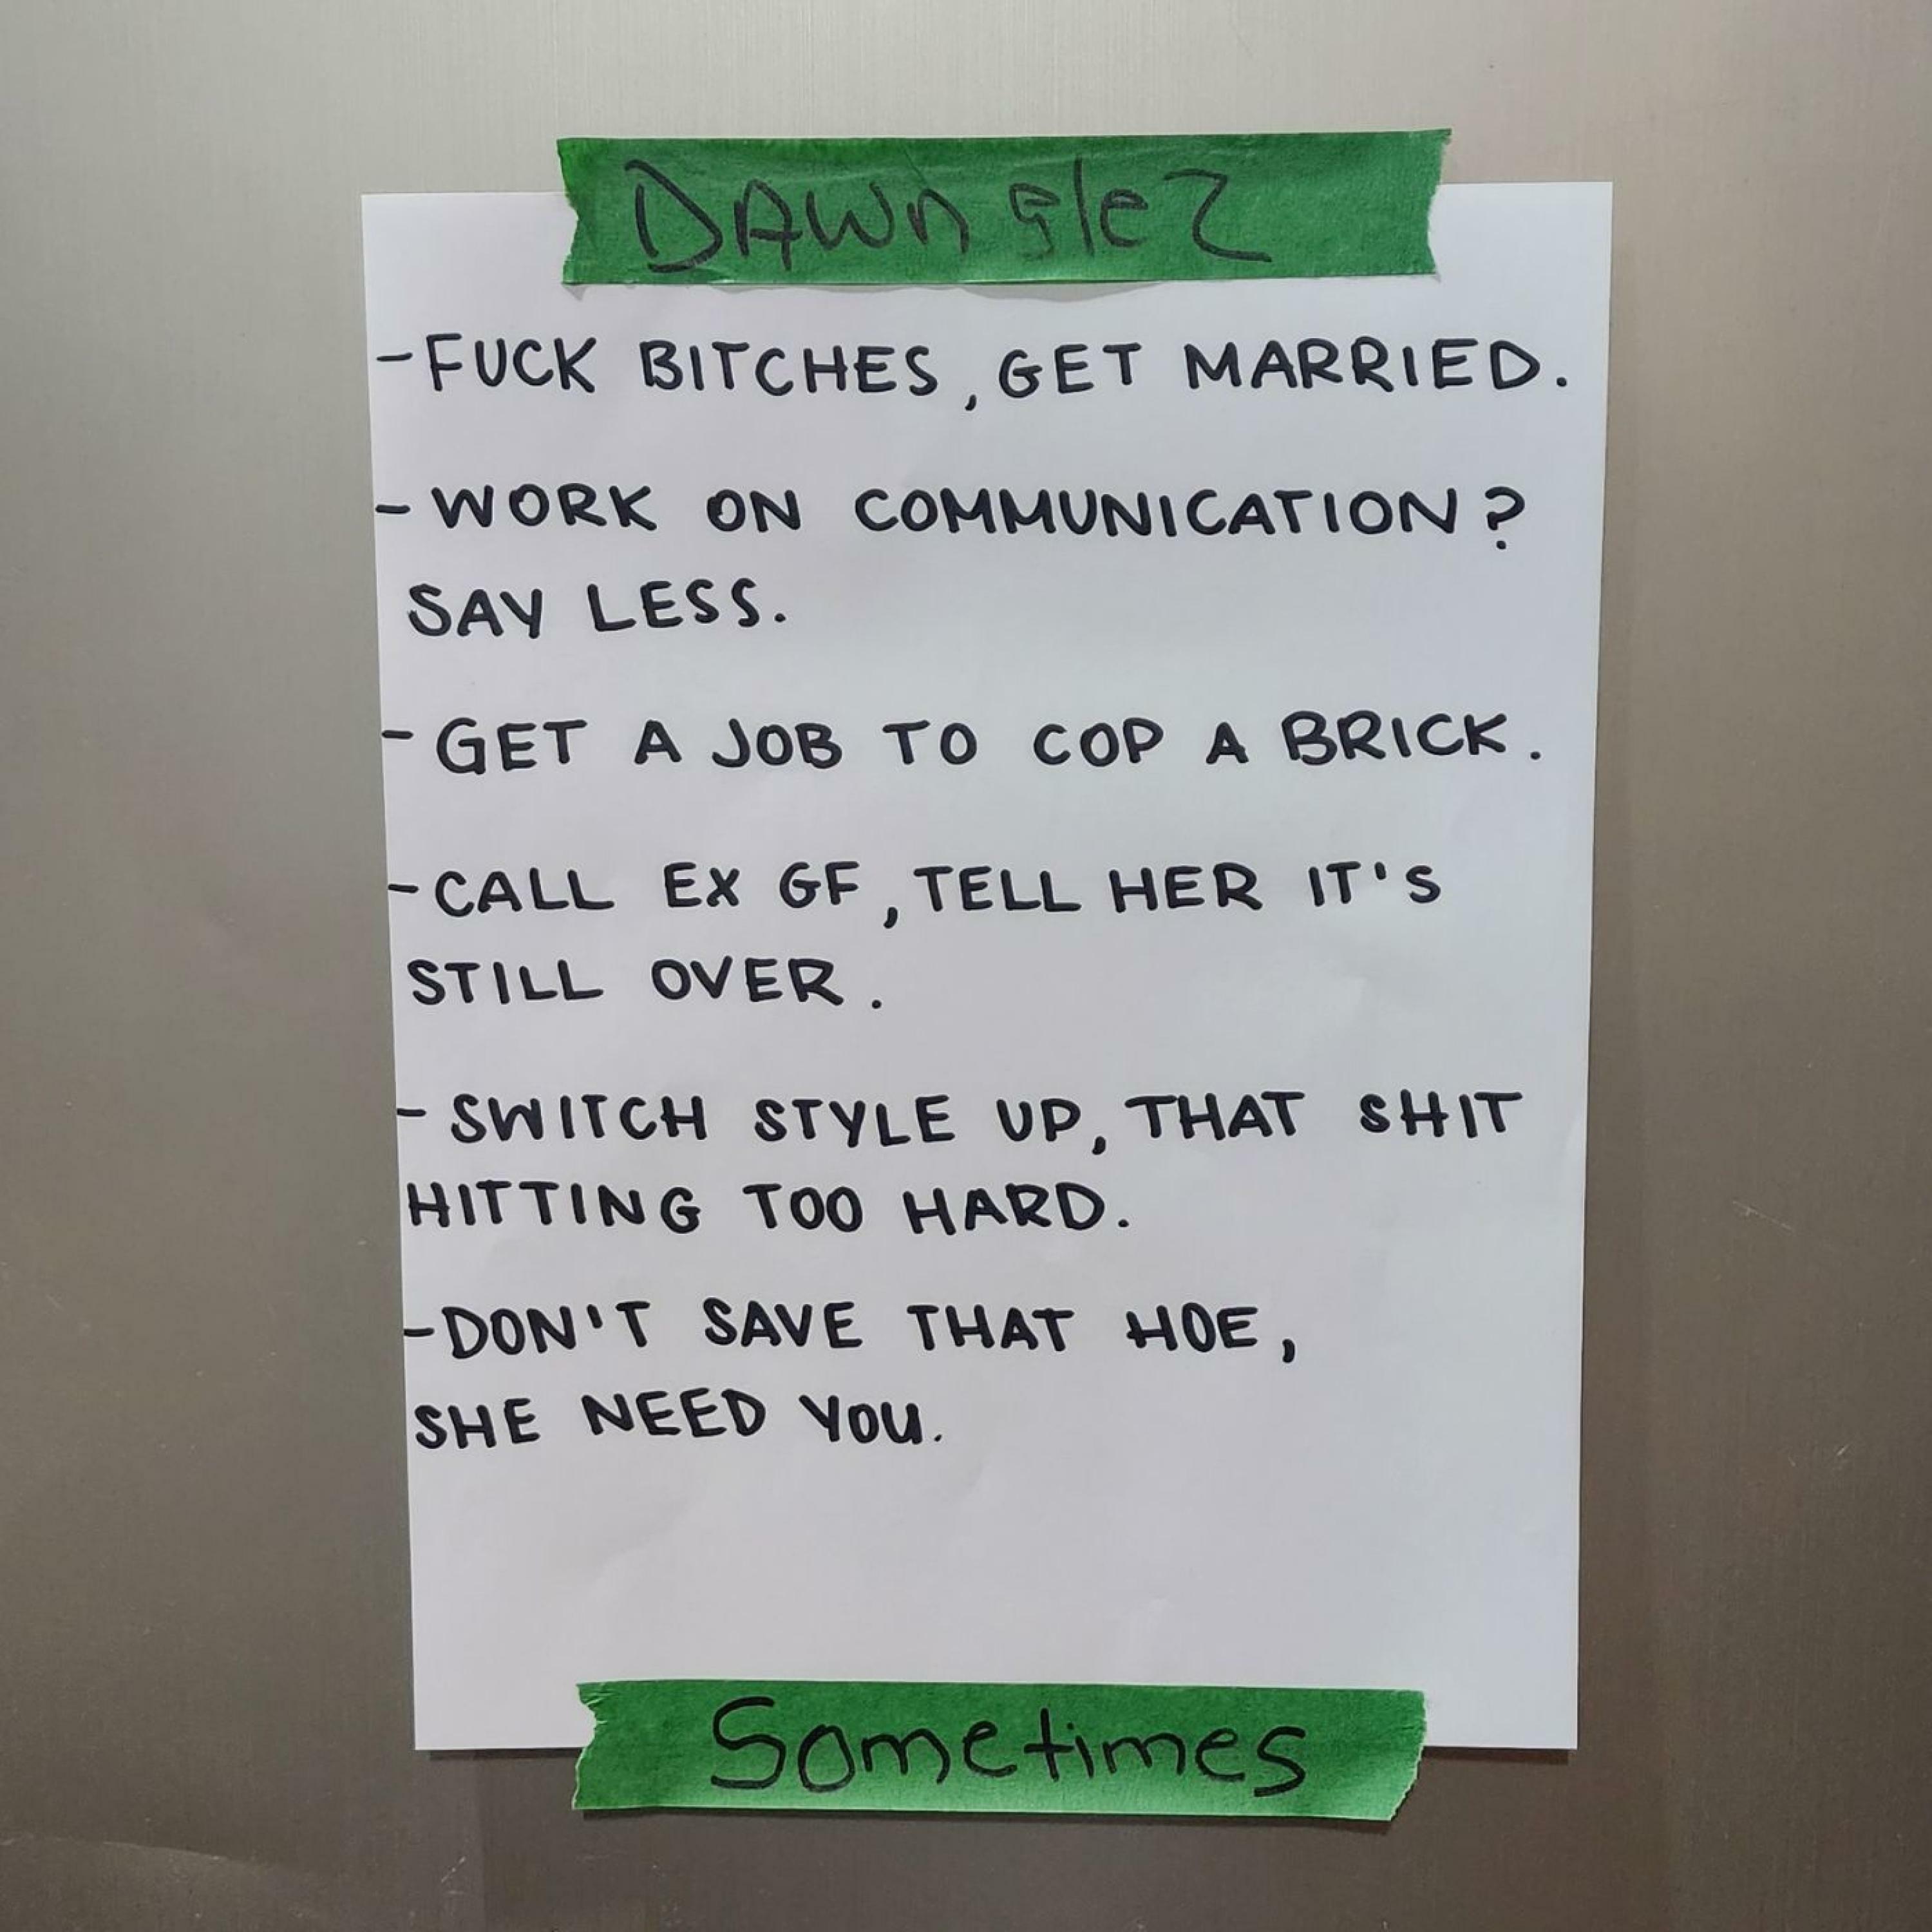 DAWn gleZ
-FUCK BITCHES, GET MARRIED.
- WORK ON COMMUNICATION?
SAY LESS.
- GET A JOB TO COP A BRICK.
-CALL EX GF, TELL HER IT'S
STILL OVER.
- SWITCH STYLE UP, THAT SHIT
HITTING TOO HARD.
-DON'T SAVE THAT HOE,
SHE NEED YOU.
Sometimes